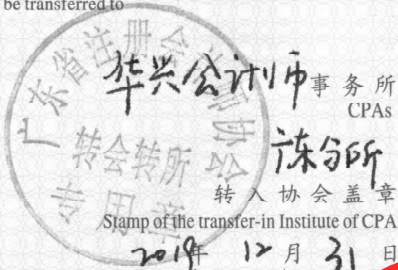 be transferred to
华兴会计师事务所
CPAs
广东分所
转入协会盖章
Stamp of the transfer-in Institute of CPA
2019年 12月 31日
广东省注册会计师协会
转会转所
专用章